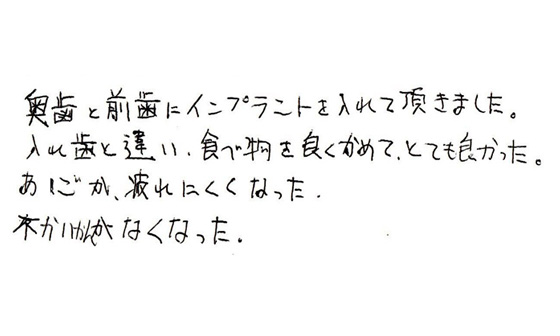 奥歯と前歯にインプラントを入れて頂きました。
入れ歯と違い、食べ物を良くかめて、とても良かった。
あごが、疲れにくくなった.
不かいかんがなくなった。